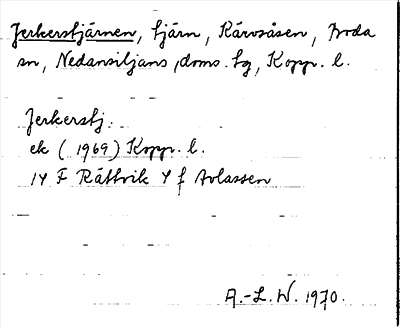 Jerkerstjärnen, tjärn, Kårosåsen, Boda
sn, Nedansiljans doms. tg, Kopp. l.
Jerkerstj.
ek (1969) Kopp. l.
14 F Rättvik 4 f Avlassen
A.-L. W. 1970.